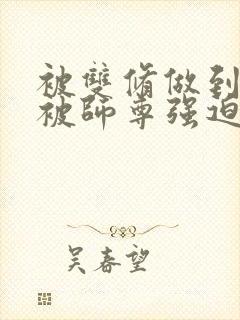 被雙脩做到
被師尊强迫
吴春望